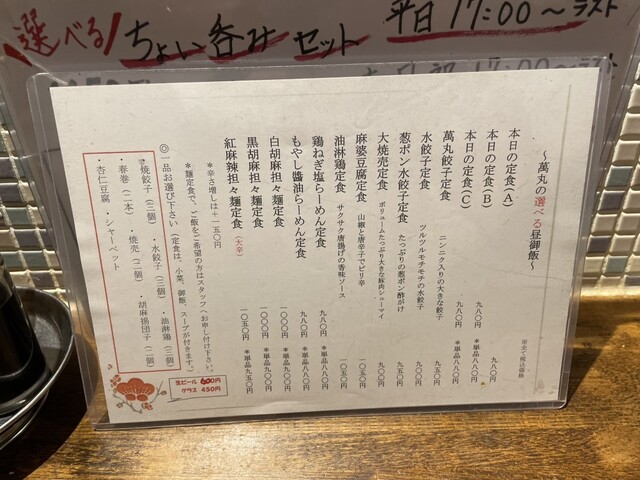 選べる ちょい呑み セット 平日17:00〜ラスト
～萬丸の選べる昼御飯～
※全て税込価格
本日の定食(A) 九八〇円
本日の定食(B) 九八〇円 *単品八八〇円
本日の定食(C) 九八〇円 *単品八八〇円
萬丸餃子定食 ニンニク入りの大きな餃子 九五〇円
水餃子定食 ツルツルモチモチの水餃子 九〇〇円
葱ポン水餃子定食 たっぷりの葱ポン酢がけ 九五〇円
大焼売定食 ボリュームたっぷり大きな豚肉シューマイ 九〇〇円
麻婆豆腐定食 山椒と唐辛子でピリ辛 一〇五〇円
油淋鶏定食 サクサク唐揚げの香味ソース 一〇五〇円
鶏ねぎ塩らーめん定食 九八〇円 *単品八八〇円
もやし醬油らーめん定食 九八〇円 *単品八八〇円
白胡麻担々麺定食 一〇〇〇円 *単品九〇〇円
黒胡麻担々麺定食 一〇〇〇円 *単品九〇〇円
紅麻辣担々麺定食(大辛) 一〇五〇円 *単品九五〇円
*辛さ増しは+一五〇円
*麺定食で、ご飯をご希望の方はスタッフへお申し付け下さい。
◎一品お選び下さい(定食は、小菜、御飯、スープが付きます。)
・焼餃子(三個) ・水餃子(三個) ・油淋鶏(三個)
・春巻(二本) ・焼売(二個) ・胡麻揚団子(二個)
・杏仁豆腐 ・シャーベット
生ビール 600円
グラス 450円